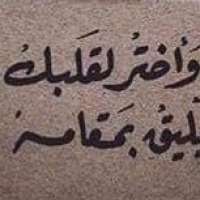 وَأختَرْ لقَلبكَ
يَليقُ بمَقامهْ